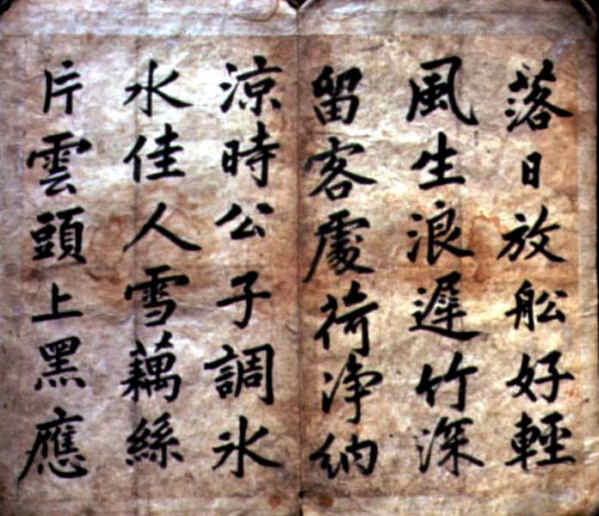 落日放舩好輕
風生浪遲竹深
留客處荷淨納
涼時公子調氷
水佳人雪藕絲
片雲頭上黑應